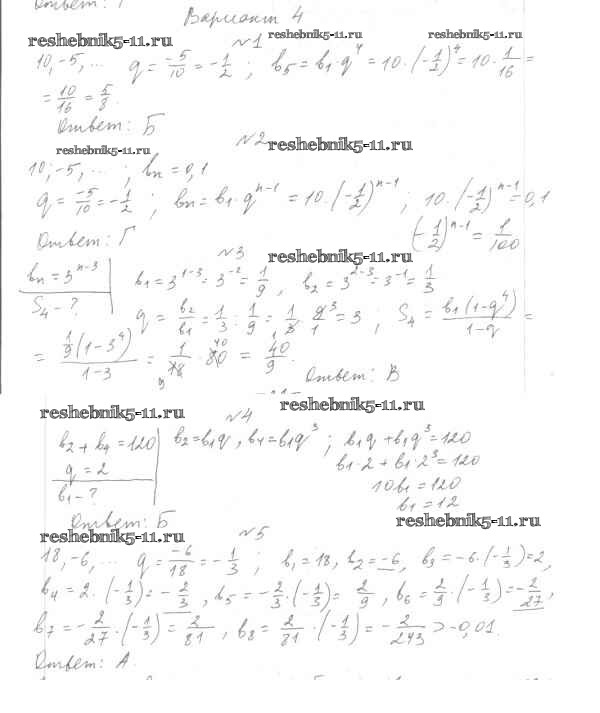 Ответ: Г
Вариант 4
reshebnik5-11.ru №1 reshebnik5-11.ru reshebnik5-11.ru
10, -5, ... q = -5/10 = -1/2 ; b₅ = b₁·q⁴ = 10·(-1/2)⁴ = 10·1/16 =
= 10/16 = 5/8.
Ответ: Б
reshebnik5-11.ru №2 reshebnik5-11.ru
10; -5, ... ; bn = 0,1
q = -5/10 = -1/2 ; bn = b₁·qⁿ⁻¹ = 10·(-1/2)ⁿ⁻¹ ; 10·(-1/2)ⁿ⁻¹ = 0,1
(-1/2)ⁿ⁻¹ = 1/100
Ответ: Г
№3 reshebnik5-11.ru
bn = 3ⁿ⁻³ b₁ = 3¹⁻³ = 3⁻² = 1/9 , b₂ = 3²⁻³ = 3⁻¹ = 1/3
S₄ - ? q = b₂/b₁ = 1/3 : 1/9 = 1/3 · 9/1 = 3 ; S₄ = b₁(1-q⁴)/1-q =
= 1/9(1-3⁴)/1-3 = 1/18 · 80 = 40/9.
Ответ: В
reshebnik5-11.ru №4 reshebnik5-11.ru
b₂ + b₄ = 120 b₂ = b₁q , b₄ = b₁q³ ; b₁q + b₁q³ = 120
q = 2 b₁·2 + b₁·2³ = 120
b₁ - ? 10b₁ = 120
b₁ = 12
Ответ: Б reshebnik5-11.ru
reshebnik5-11.ru №5
18, -6, ... q = -6/18 = -1/3 ; b₁ = 18, b₂ = -6, b₃ = -6·(-1/3) = 2,
b₄ = 2·(-1/3) = -2/3 , b₅ = -2/3·(-1/3) = 2/9 , b₆ = 2/9·(-1/3) = -2/27,
b₇ = -2/27·(-1/3) = 2/81 , b₈ = 2/81·(-1/3) = -2/243 > -0,01.
Ответ: А.